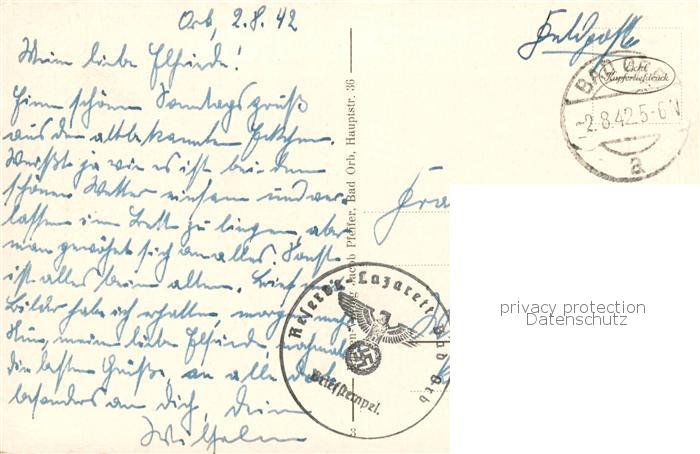 Orb, 2.8.42
Mein liebe Elfriede!
Einen schönen Sonntagsgruß
aus dem altbekannten Eckchen.
Weißt ja wie es ist bei dem
schönen Wetter einsam und ver-
lassen im Bett zu liegen, aber
man gewöhnt sich an alles. Sonst
ist alles beim alten. Brief mit
Bilder habe ich erhalten, morgen mehr
Nun, meine liebe Elfriede nochmals
die besten Grüße, an alle
besonders an Dich, Dein
Wilhelm
Jacob Pfeifer, Bad Orb, Hauptstr. 36
3
Feldpost
Echt
Kupfertiefdruck
BAD ORB
-2.8.42.5-6N
a
Frau
Reserve-Lazarett Bad Orb
Briefstempel.
privacy protection
Datenschutz